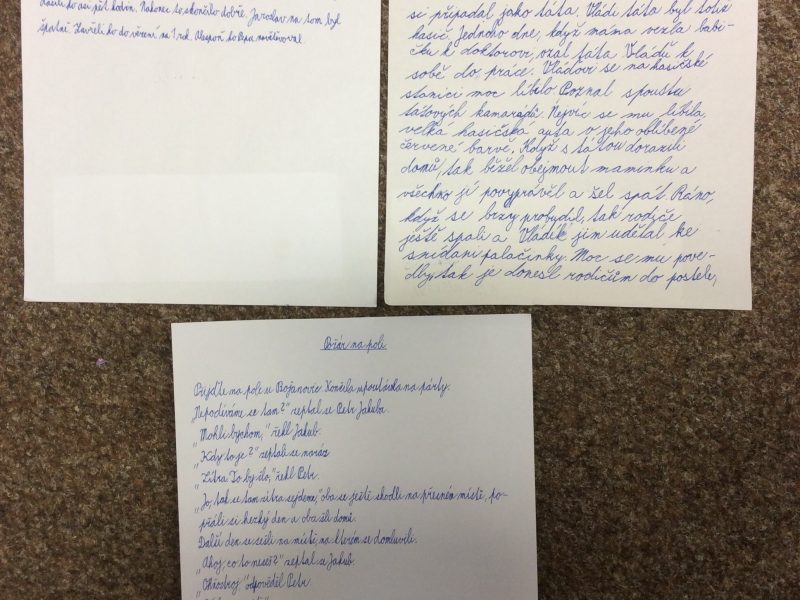 hasili to asi pět hodin. Nakonec to skončilo dobře. Jaroslav na tom byl
špatně. Zavřeli ho do vězení na 1 rok. Alespoň ho Pepa navštěvoval.
si připadal jako táta. Vládi táta byl totiž
hasič. Jednoho dne, když máma vezla babi-
čku k doktorovi, vzal táta Vládu k
sobě do práce. Vláďovi se na hasičské
stanici moc líbilo. Poznal spoustu
tátových kamarádů. Nejvíc se mu líbila
velká hasičská auta v jeho oblíbené
červené barvě. Když s tátou dorazili
domů, tak běžel obejmout maminku a
všechno jí povyprávěl a šel spát. Ráno,
když se brzy probudil, tak rodiče
ještě spali a Vládík jim udělal ke
snídani palačinky. Moc se mu pove-
dly, tak je donesl rodičům do postele,
Požár na poli
Přijďte na pole u Božanovic. Končila upoutávka na párty.
„Nepodíváme se tam?" zeptal se Petr Jakuba.
„Mohli bychom," řekl Jakub.
„Kdy to je?" zeptali se naráz.
„Zítra. To by šlo," řekl Petr.
„Jo, tak se tam zítra sejdeme," oba se ještě shodli na přesném místě, po-
přáli si hezký den a oba šli domů.
Další den se sešli na místě, na kterém se domluvili.
„Ahoj, co to neseš?" zeptal se Jakub.
„Ohňostroj" odpověděl Petr.